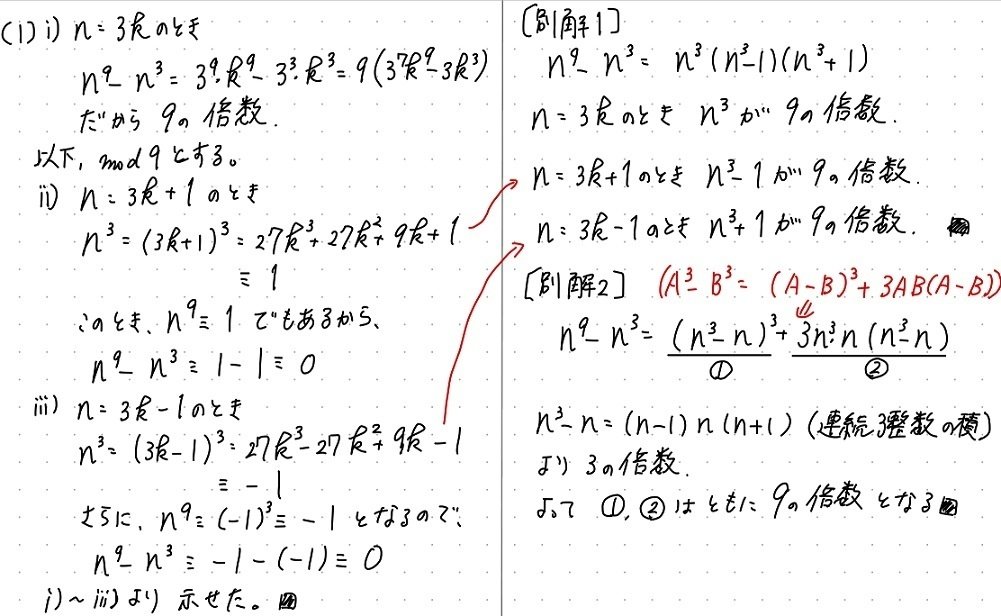 (1) i) n = 3k のとき
n⁹ - n³ = 3⁹·k⁹ - 3³·k³ = 9(3⁷k⁹ - 3k³)
だから 9の倍数.
以下, mod 9 とする。
ii) n = 3k + 1 のとき
n³ = (3k+1)³ = 27k³ + 27k² + 9k + 1
≡ 1
このとき、n⁹ ≡ 1 でもあるから、
n⁹ - n³ ≡ 1 - 1 ≡ 0
iii) n = 3k - 1 のとき
n³ = (3k-1)³ = 27k³ - 27k² + 9k - 1
≡ - 1
さらに、n⁹ ≡ (-1)³ ≡ - 1 となるので、
n⁹ - n³ ≡ - 1 - (-1) ≡ 0
i) ~ iii) より 示せた。
[別解1]
n⁹ - n³ = n³(n³-1)(n³+1)
n = 3k のとき n³ が 9の倍数.
n = 3k+1 のとき n³-1 が 9の倍数.
n = 3k-1 のとき n³+1 が 9の倍数.
[別解2] (A³-B³ = (A-B)³ + 3AB(A-B))
n⁹ - n³ = (n³-n)³ + 3n³·n(n³-n)
① ②
n³-n = (n-1)n(n+1) (連続3整数の積)
より 3の倍数.
よって ①, ② はともに 9の倍数 となる